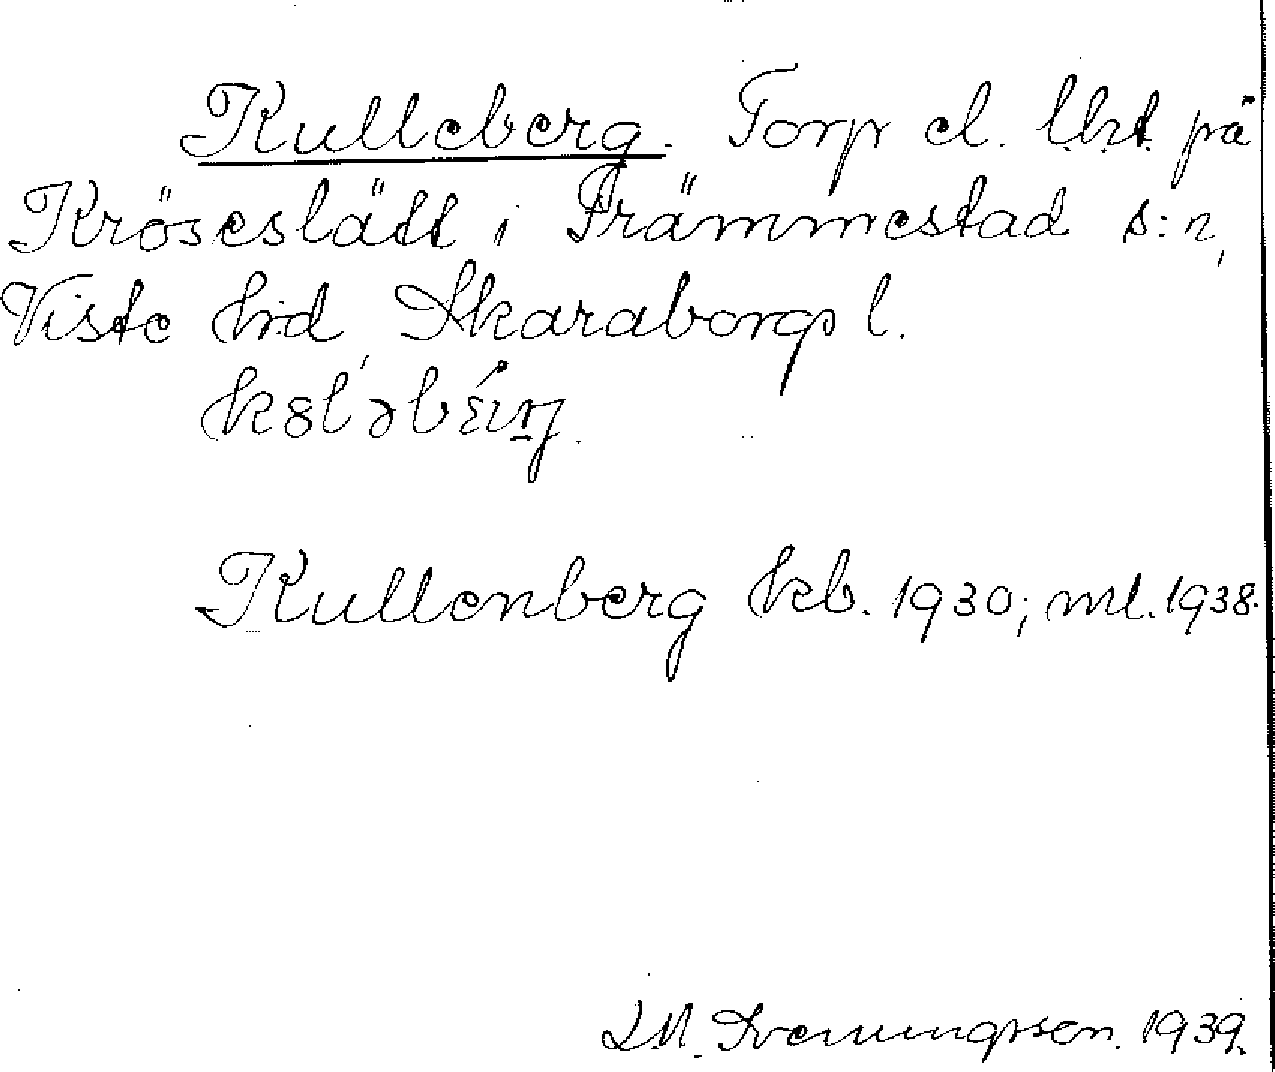 Kulleberg. Torp el. lht. på
Kröseslätt i Främmestad s:n,
Viste hd, Skaraborgs l.
Kullenberg kb. 1930; ml. 1938.
D.M. Svenungsson. 1939.